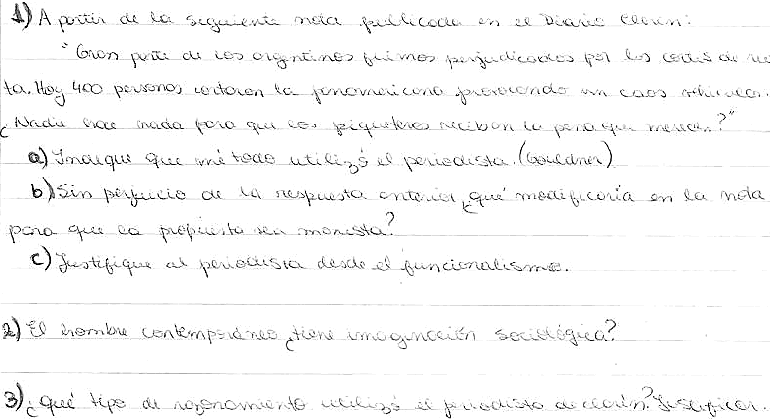 1) A partir de la seguiente nota publicada en el Diario Clarín:
"Gran parte de los argentinos fuimos perjudicados por los cortes de ru
ta. Hoy 400 personas cortaron la panamericana provocando un caos vehicular.
¿Nadie hace nada para que los piqueteros reciban la pena que merecen?"
a) Indique que método utilizó el periodista. (Gouldner)
b) Sin perjuicio de la respuesta anterior ¿qué modificaría en la nota
para que la propuesta sea monista?
c) Justifique al periodista desde el funcionalismo.
2) El hombre contemporáneo ¿tiene imaginación sociológica?
3) ¿qué tipo de razonamiento utilizó el periodista de clarín? Justificar.